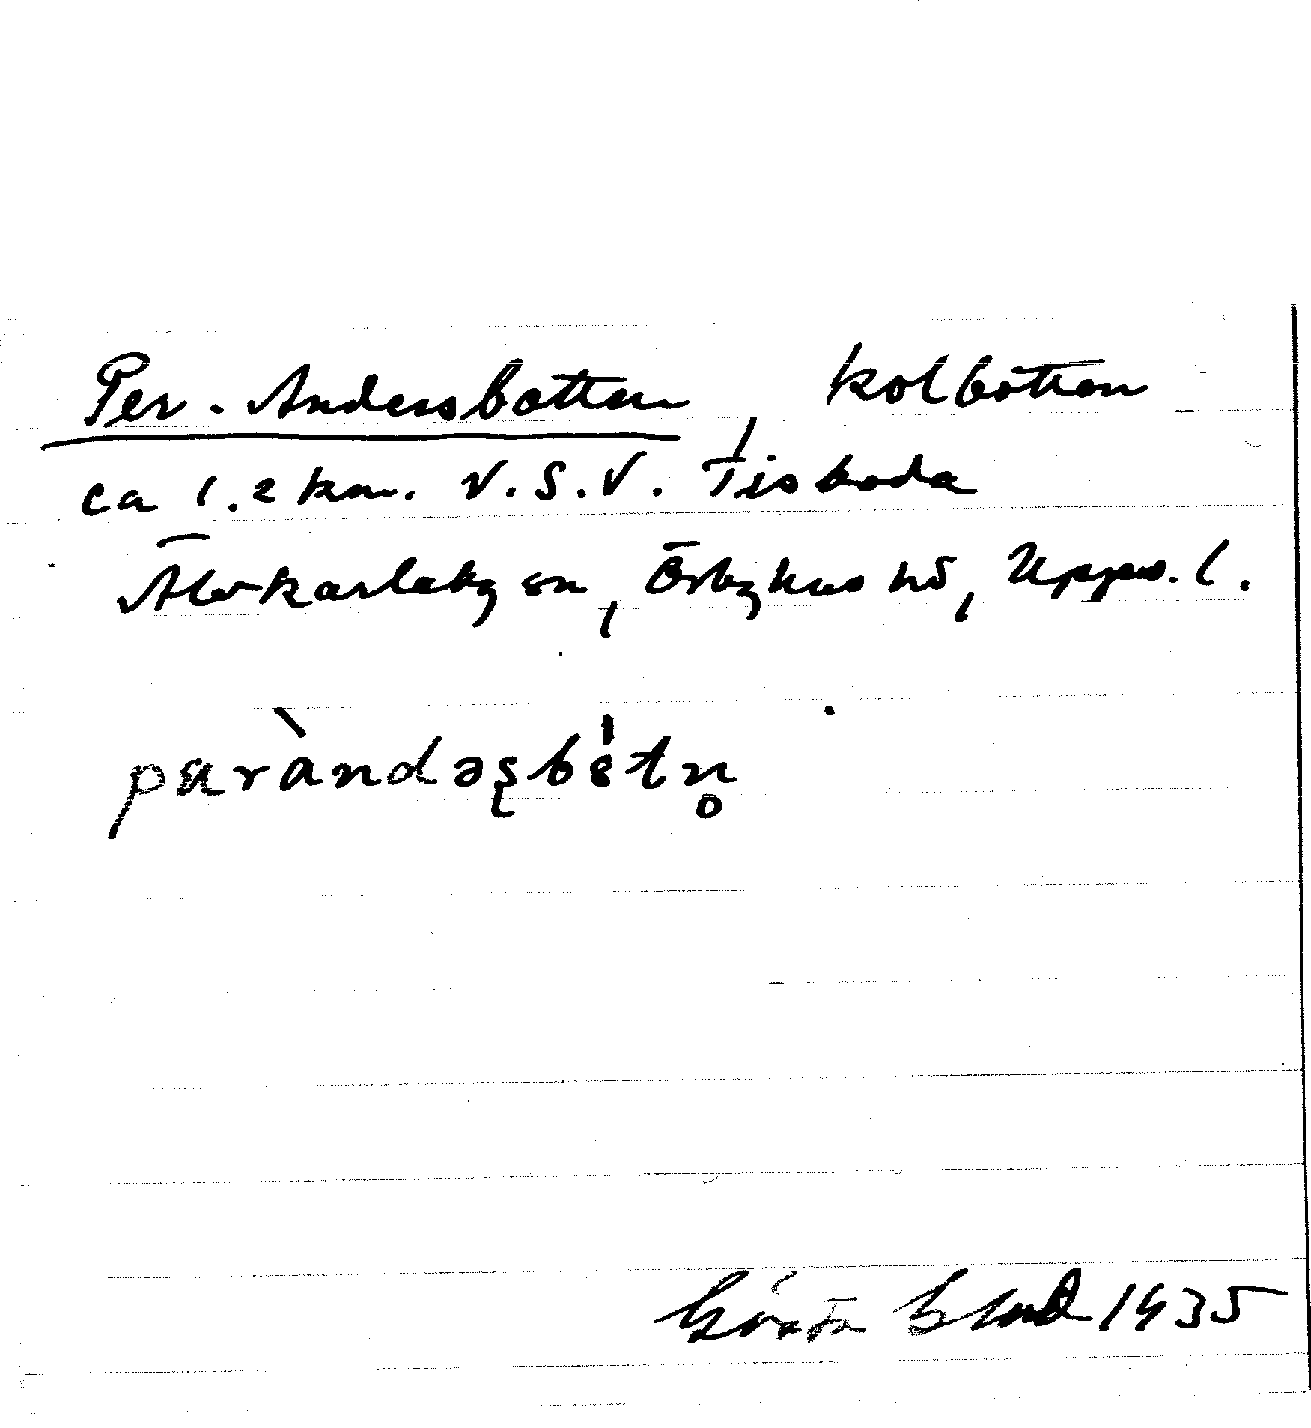 Per-Andersbotten, kolbotten
ca 1.2 km. V.S.V. Tisboda
Älvkarleby sn, Örbyhus hd, Upps. l.
pɐràndəʂbɵ́tn̥
Gösta 1935